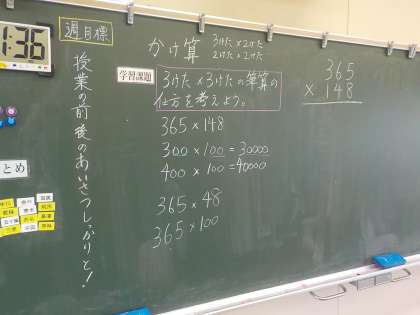 1:36
週目標
授業の前後のあいさつしっかりと!
かけ算 3けた×2けた
2けた×2けた
学習課題
3けた×3けたの筆算の
仕方を考えよう。
365×148
300×100=30000
400×100=40000
365×48
365×100
365
×148
とめ